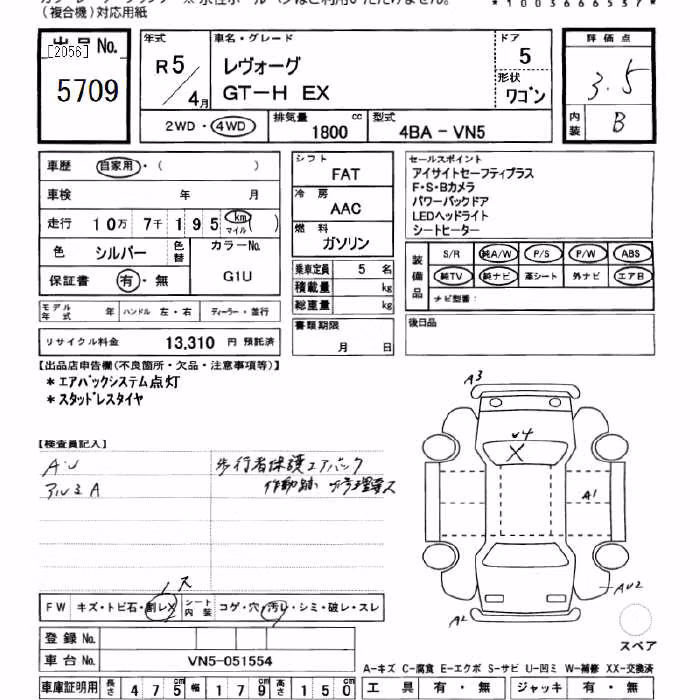 (複合機)対応用紙
出品No.
[2056]
5709
年式
R5
4月
車名・グレード
レヴォーグ
GT-H EX
ドア
5
形状
ワゴン
評価点
3.5
内装
B
2WD・4WD
排気量
1800
cc
型式
4BA-VN5
車歴
自家用・( )
車検
年 月
走行
10万 7千 195
km
マイル
( )
色
シルバー
色替
カラーNo.
G1U
保証書
有・無
モデル年式
年
ハンドル 左・右
ディーラー・並行
リサイクル料金
13,310 円 預託済
シフト
FAT
冷房
AAC
燃料
ガソリン
乗車定員 5 名
積載量 kg
総重量 kg
書類期限
月 日
セールスポイント
アイサイトセーフティプラス
F・S・Bカメラ
パワーバックドア
LEDヘッドライト
シートヒーター
装備品
S/R 純A/W P/S P/W ABS
純TV 純ナビ 革シート 外ナビ エアB
ナビ型番:
後日品
【出品店申告欄(不良箇所・欠品・注意事項等)】
*エアバックシステム点灯
*スタッドレスタイヤ
【検査員記入】
A・U
アルミA
歩行者保護エアバック
作動跡
A3
A1
AU2
A2
スペア
FW
キズ・トビ石・割レX
シート内装
コゲ・穴・汚レ・シミ・破レ・スレ
登録No.
車台No.
VN5-051554
車庫証明用
長さ 475 cm
幅 179 cm
高さ 150 cm
A-キズ C-腐食 E-エクボ S-サビ U-凹ミ W-補修 XX-交換済
工具 有・無
ジャッキ 有・無